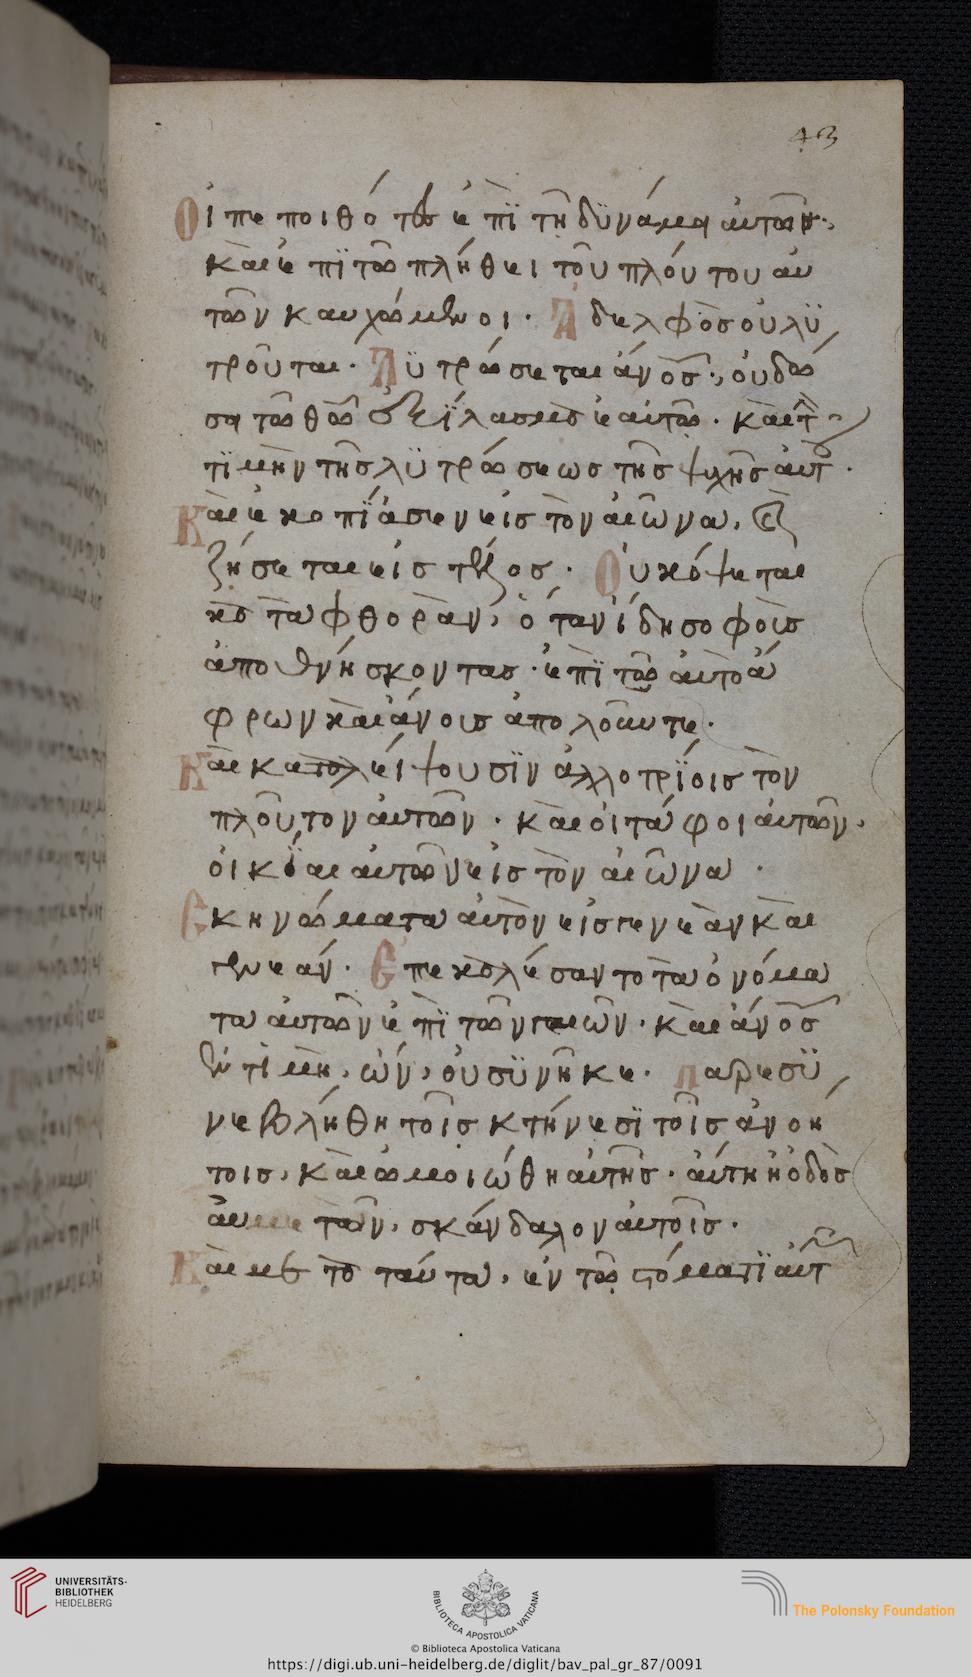 43
Οἱ πεποιθότες ἐπῒ τῆ δϋνάμει αὐτῶν,
Καὶ ἐπῒ τῶ πλήθει τοῦ πλούτου αὐ
τῶν καυχώμενοι· Ἀδελφὸς οὐ λϋ
τροῦται· Λϋτρώσεται ἄνος, οὐ δώ
σει τῶ θῶ ἐξϊλασμὸν ἑαυτῶ· καὶ τ
τϊμὴν τῆς λϋτρώσεως τῆς ψυχῆς αὐτ·
Καὶ ἐκοπΐασεν εἰς τὸν αἰῶνα,
ζήσεται εἰς τέλος· Οὐκ ὄψεται
κατὰ φθορὰν, ὅταν ἴδη σοφοὺς
ἀποθνήσκοντας· ἐπῒ τῶ αὐτὸ ἄ
φρων καὶ ἄνοις ἀπολοῦντε·
Καὶ καταλείψουσϊν ἀλλοτρΐοις τὸν
πλοῦτον αὐτῶν· καὶ οἱ τάφοι αὐτῶν,
οἰκΐαι αὐτῶν εἰς τὸν αἰῶνα·
Σκηνώματα αὐτὸν εἰς γενεὰν καὶ
γενεάν· Ἐπεκαλέσαντο τὰ ὀνόμα
τα αὐτῶν ἐπῒ τῶν γαιῶν· καὶ ἄνος
ἐν τιμῆ, ὢν, οὐ σϋνῆκε· παρεσϋ
νεβλήθη τοῖς κτήνεσϊ τοῖς ἀνοή
τοις, καὶ ὡμοιώθη αὐτῆς· αὕτη ἡ ὁδὸς
αὐ τῶν, σκάνδαλον αὐτοῖς·
Καὶ μετὰ ταύτα, ἐν τῶ στόματϊ αὐτ
UNIVERSITÄTS-
BIBLIOTHEK
HEIDELBERG
BIBLIOTECA APOSTOLICA VATICANA
The Polonsky Foundation
© Biblioteca Apostolica Vaticana
https://digi.ub.uni-heidelberg.de/diglit/bav_pal_gr_87/0091